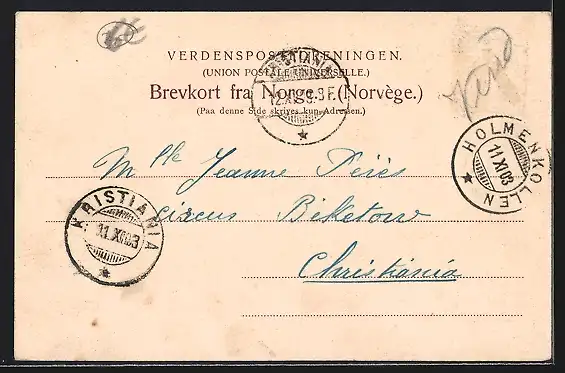 VERDENSPOSTFORENINGEN.
(UNION POSTALE UNIVERSELLE.)
Brevkort fra Norge. (Norvège.)
(Paa denne Side skrives kun Adressen.)
KRISTIANIA
12.XI.03.9 F.
HOLMENKOLLEN
11.XI.03
Mlle Jeanne
Circus Beketow
Christiania
KRISTIANIA
11.XI.03